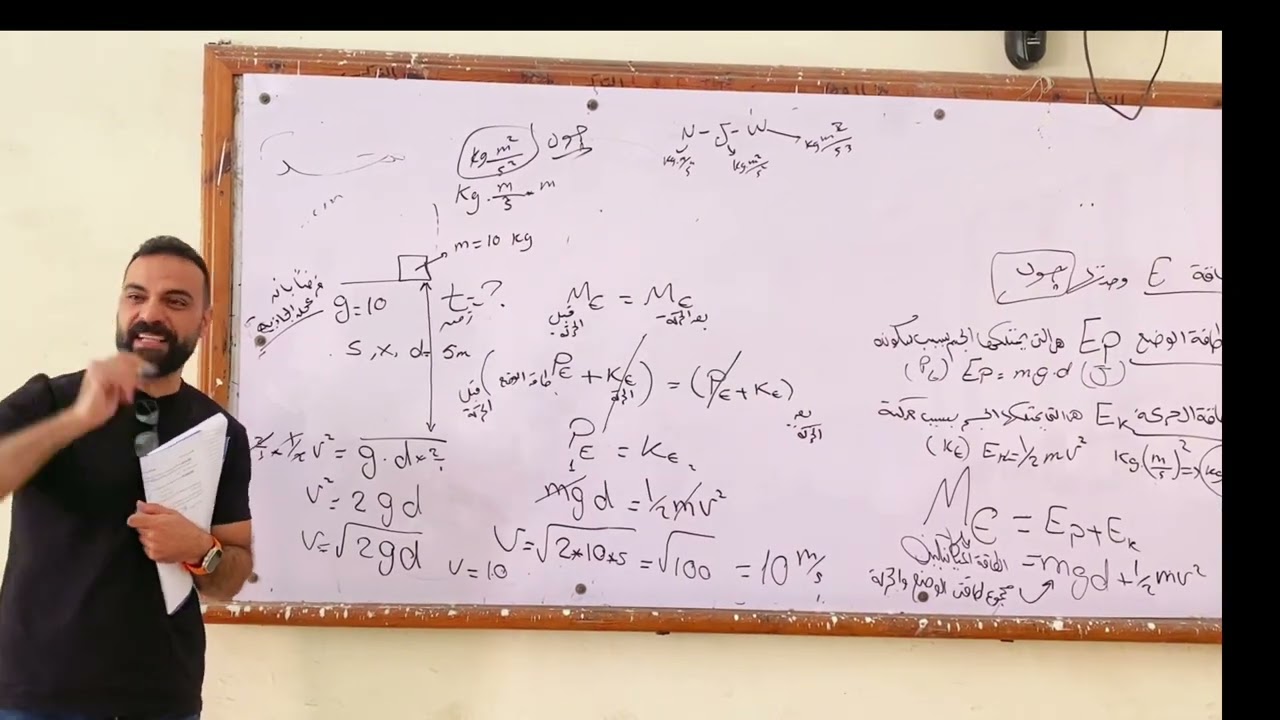 kg m²/s² جول
Kg . m/s . m
N - J - W
kg.m/s kg.m²/s kg m²/s³
m = 10 kg
g = 10
t = ?
زمن
s , x, d = 5m
M_E = M_E
قبل الحركة بعد الحركة
قبل الحركة (طاقة الوضع P_E + K_E الحركة) = (P_E + K_E) بعد الحركة
P_E = K_E
mgd = 1/2 mv²
V = √2*10*5 = √100 = 10 m/s
2/1 * 1/2 v² = g . d * 2/1
v² = 2gd
v = √2gd
v = 10
طاقة E وحدتها جول
طاقة الوضع Ep هي التي يمتلكها الجسم بسبب سكونه
(P_E) Ep = mg.d (J)
طاقة الحركة Ek هي التي يمتلكها الجسم بسبب حركته
(K_E) Ek = 1/2 mv² Kg.(m/s)² =>
M_E = Ep + Ek
الطاقة الميكانيكية = mgd + 1/2 mv²
مجموع طاقتي الوضع والحركة